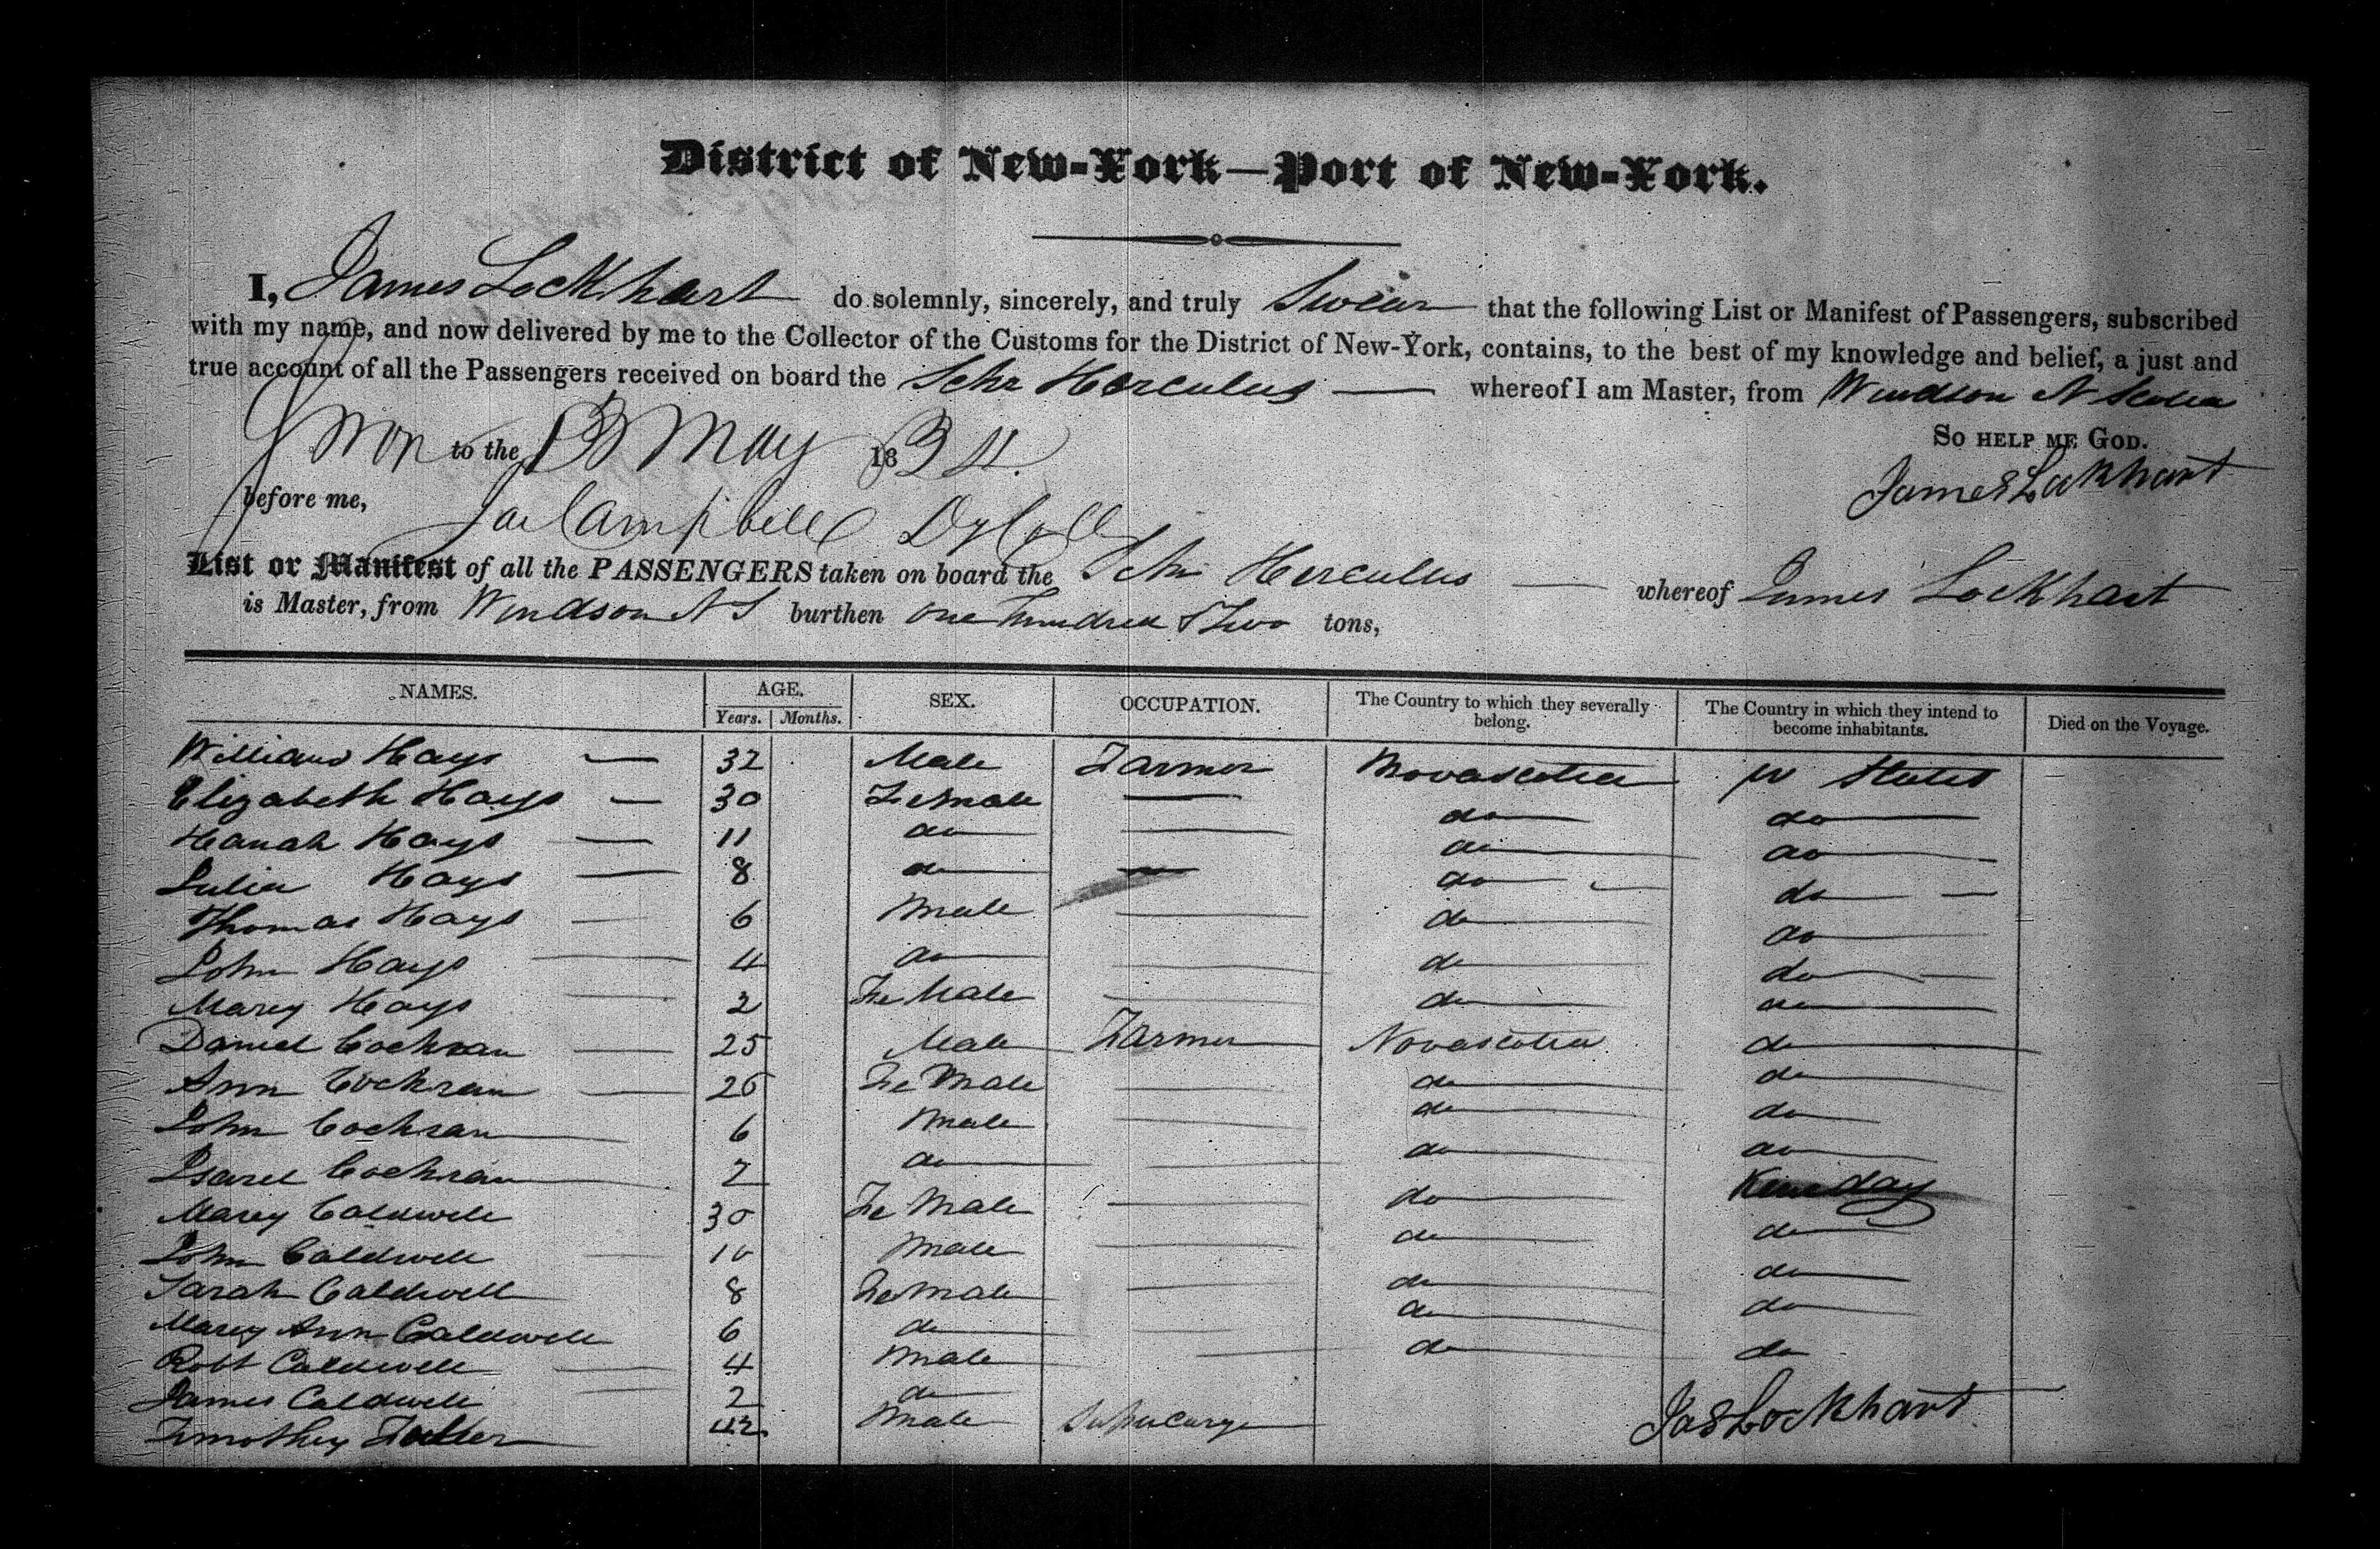 District of New-York—Port of New-York.
I, James Lockhart do solemnly, sincerely, and truly Swear that the following List or Manifest of Passengers, subscribed
with my name, and now delivered by me to the Collector of the Customs for the District of New-York, contains, to the best of my knowledge and belief, a just and
true account of all the Passengers received on board the Schr Herculus whereof I am Master, from Windsor N Scotia
So help me God.
Sworn to the 13 May 1834
James Lockhart
before me, Jas Campbell Dy Coll
List or Manifest of all the PASSENGERS taken on board the Schr Hercules whereof James Lockhart
is Master, from Windsor N S burthen one hundred & Two tons,
NAMES. AGE. Years. Months. SEX. OCCUPATION. The Country to which they severally belong. The Country in which they intend to become inhabitants. Died on the Voyage.
William Hays — 32 Male Farmer Novascotia U States
Elizabeth Hays — 30 Female — do do
Hanah Hays — 11 do — do do
Julia Hays — 8 do — do do
Thomas Hays — 6 Male — do do
John Hays — 4 do — do do
Mary Hays — 2 Fe Male — do do
Daniel Cochran — 25 Male Farmer Novascotia do
Ann Cochran — 25 Fe Male — do do
John Cochran — 6 Male — do do
Isarel Cochran — 2 do — do do
Mary Caldwell 30 Fe Male — do
John Caldwell — 10 Male — do do
Sarah Caldwell 8 Fe Male — do do
Mary Ann Caldwell 6 do — do do
Robt Caldwell — 4 Male — do do
James Caldwell 2 do
Timothy 42 Male Supercargo
Jas Lockhart